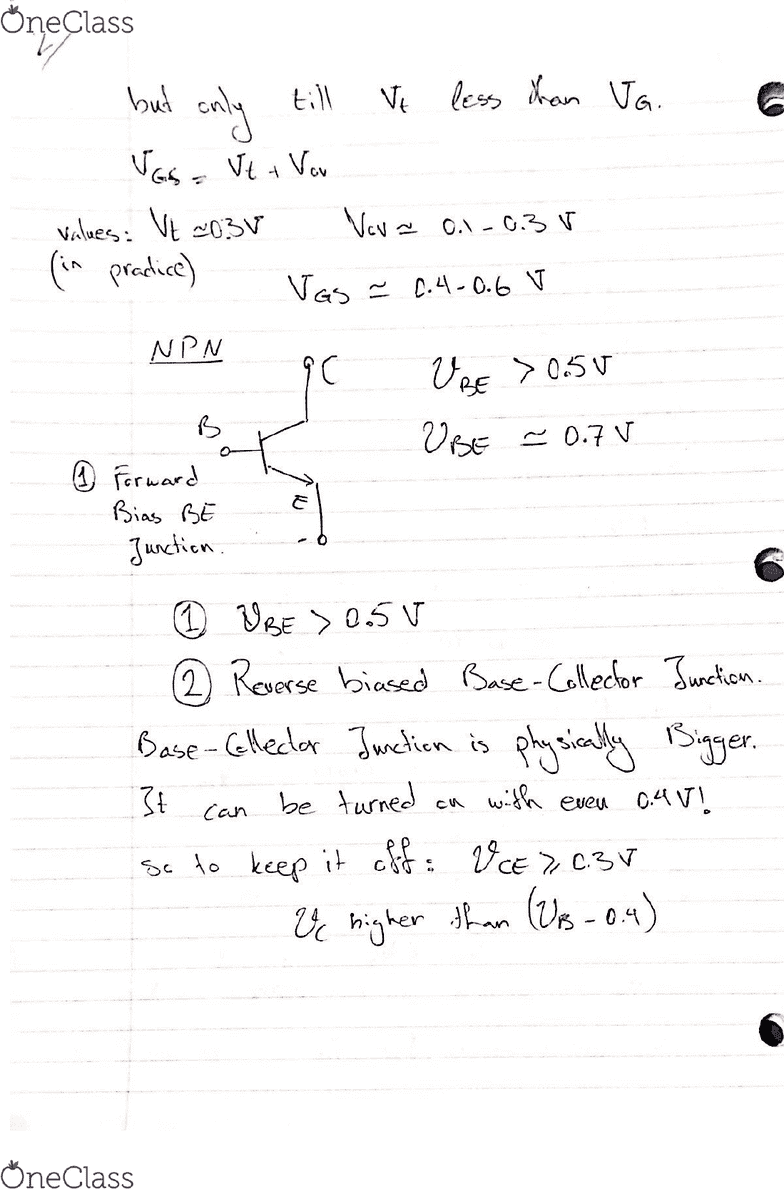 OneClass
2/
but only till Vt less than VG.
VGS = Vt + Vov
values: Vt ≃ 0.3V Vov ≃ 0.1 - 0.3 V
(in practice)
VGS ≃ 0.4-0.6 V
NPN
C
VBE > 0.5V
B
VBE ≃ 0.7V
① Forward
Bias BE
Junction.
E
① VBE > 0.5 V
② Reverse biased Base-Collector Junction.
Base-Collector Junction is physically Bigger.
It can be turned on with even 0.4V!
so to keep it off: VCE ⩾ 0.3V
VC higher than (VB - 0.4)
OneClass